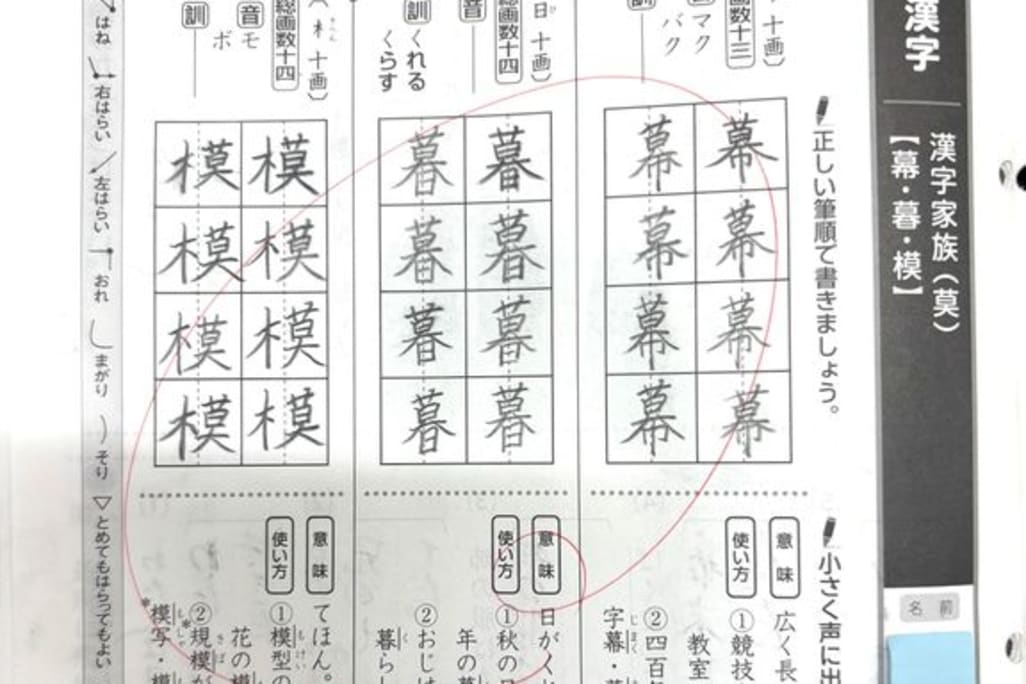 漢字
漢字家族（莫）
【幕・暮・模】
名前
正しい筆順で書きましょう。
小さく声に出
十画）
画数十三
マク
バク
幕幕幕幕
幕幕幕幕
意味
広く長
使い方
①競技
教室
②四百年
字幕・幕
日 十画）
総画数十四
音
訓
くれる
くらす
暮暮暮暮
暮暮暮暮
意味
日がく
使い方
①秋の日
年の暮
②おじ
暮らし
木 十画）
総画数十四
音
モ
ボ
訓
模模模模
模模模模
意味
てほん。
使い方
①模型の
花の模
②規模が
模写・模
はね
右はらい
左はらい
おれ
まがり
そり
▽とめてもはらってもよい